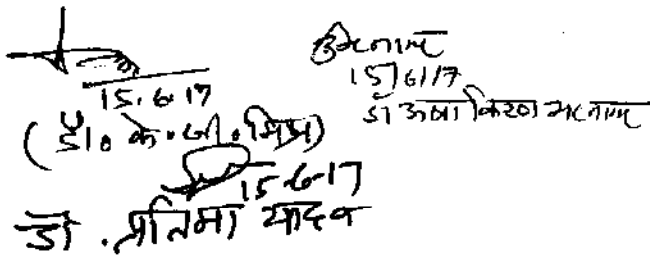 15.6.17
(डॉ. के. जी. मिश्रा)
15/6/17
डॉ ऊषा किरण भटनागर
15-6-17
डॉ. प्रतिमा यादव